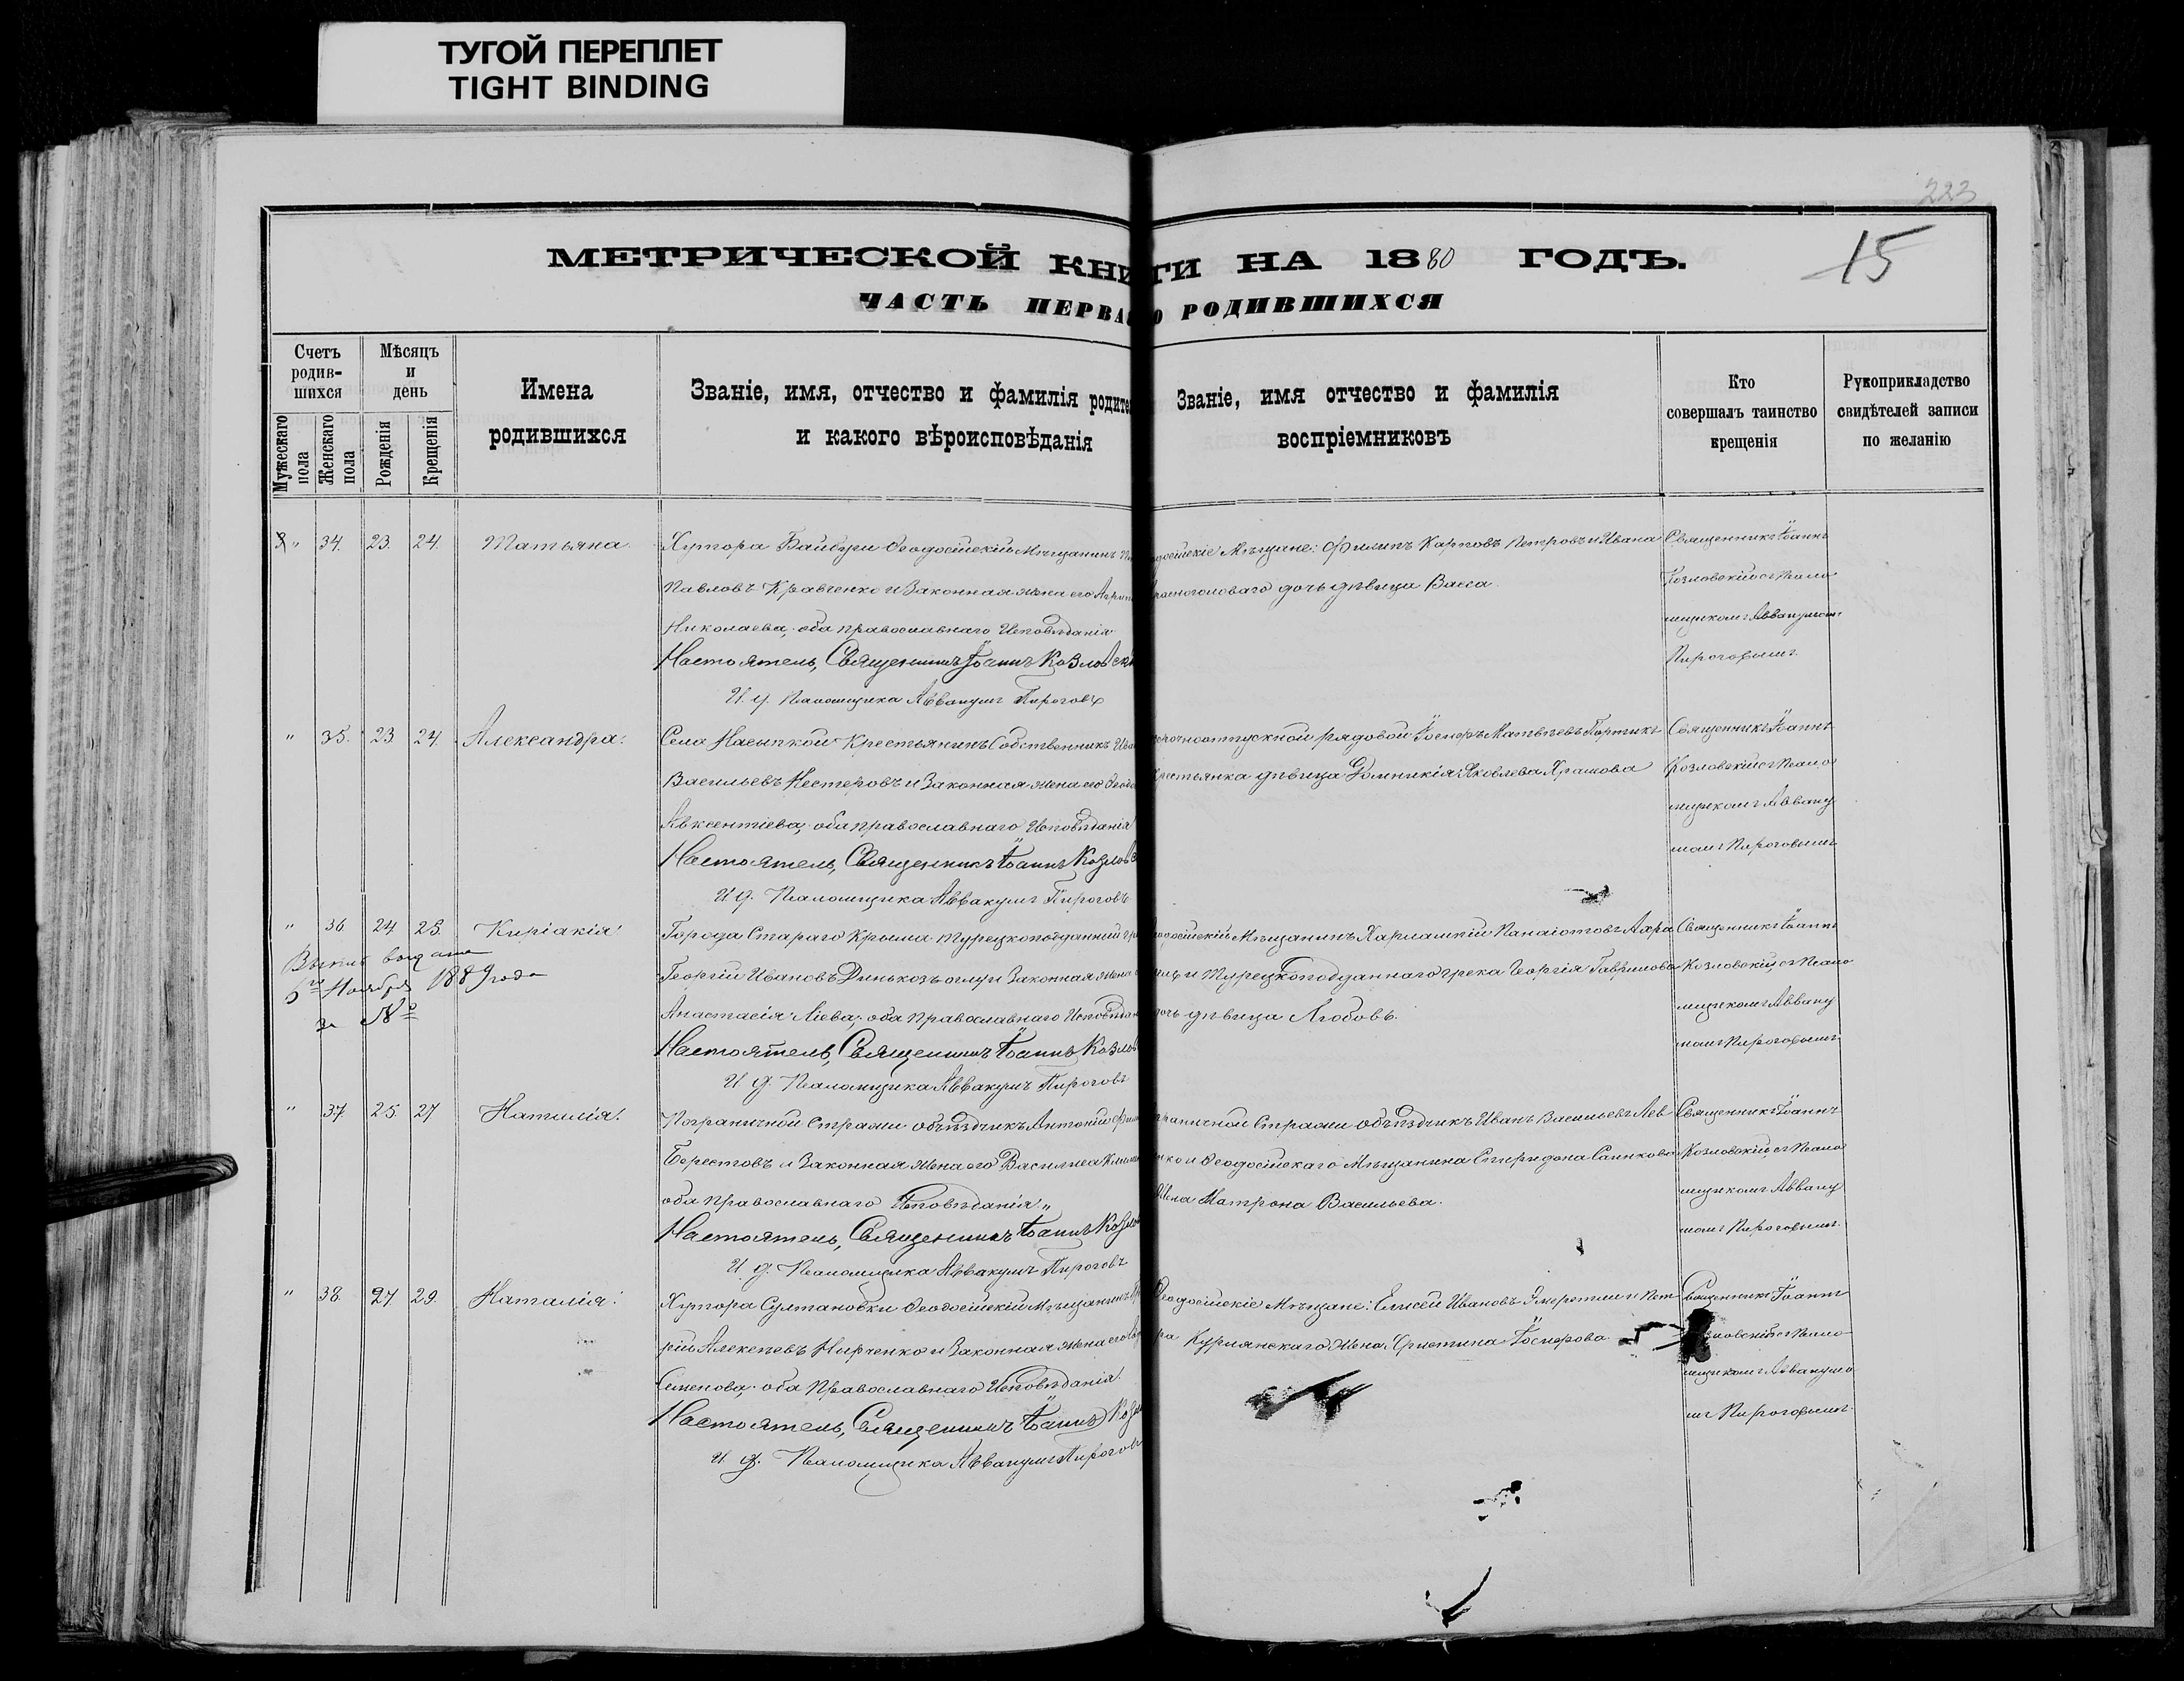 ТУГОЙ ПЕРЕПЛЕТ
TIGHT BINDING
223
15
МЕТРИЧЕСКОЙ КНИГИ НА 1880 ГОДЪ.
ЧАСТЬ ПЕРВА О РОДИВШИХСЯ
Счетъ родив-шихся
Мужескаго пола
Женскаго пола
Мѣсяцъ и день
Рожденія
Крещенія
Имена родившихся
Званіе, имя, отчество и фамилія родите
и какого вѣроисповѣданія
Званіе, имя отчество и фамилія
воспріемниковъ
Кто
совершалъ таинство
крещенія
Рукоприкладство
свидѣтелей записи
по желанію
" 34. 23. 24. Татьяна
Хутора Байбуги Ѳеодосійскій Мѣщанинъ
Павловъ Кравченко и Законная жена его
Николаева, оба православнаго Исповѣданія
Настоятель, Священникъ Іоаннъ Козловск
И. д. Псаломщика Аввакумъ Пироговъ
одосійскіе Мѣщане: Филипъ Карповъ Петровъ и Ивана
дочь дѣвица Васса
Священникъ Іоаннъ
Козловскій съ Псало
мщикомъ Аввакумомъ
Пироговымъ.
" 35. 23 24. Александра.
Села Насыпкой Крестьянинъ Собственникъ Ива
Васильевъ Нестеровъ и Законная жена его Ѳеодо
Авксентіева, оба православнаго Исповѣданія
Настоятель, Священникъ Іоаннъ Козловс
И д. Псаломщика Аввакумъ Пироговъ
срочноотпускной рядовой Іосифъ Матвѣевъ Портикъ
крестьянка дѣвица Домникія Яковлева Храмова
Священникъ Іоаннъ
Козловскій съ Псало
мщикомъ Аввату
момъ Пироговымъ
" 36 24 25. Киріакія
6го Ноября 1889 года
за №
Города Стараго Крыма Турецкоподданный Гре
Георгій Ивановъ и Законная жена
Анастасія Ліева, оба Православнаго Исповѣдан
Настоятель, Священникъ Іоаннъ Козлов
И д. Псаломщика Аввакумъ Пироговъ
одосійскій Мѣщанинъ Харлампій Панаіотовъ
и Турецкоподданнаго грека Георгія Гаврилова
дочь дѣвица Любовь.
Священникъ Іоаннъ
Козловскій, съ Псало
мщикомъ Авваку
момъ Пироговымъ
" 37 25. 27 Наталія.
Пограничной Стражи объѣздчикъ Антоній
Берестовъ и Законная жена его Василиса
оба православнаго Исповѣданія"
Настоятель, Священникъ Іоаннъ Козлов
И. д. Псаломщика Аввакумъ Пироговъ
граничной Стражи объѣздчикъ Иванъ Васильевъ Лев
нко и Ѳеодосійскаго Мѣщанина Спиридона
жена Матрона Васильева.
Священникъ Іоаннъ
Козловскій, съ Псало
мщикомъ Авваку
момъ Пироговымъ.
" 38. 27. 29. Наталія.
Хутора Султановки Ѳеодосійскій Мѣщанинъ
рій Алексѣевъ Нирченко и Законная жена его
Семенова, оба Православнаго Исповѣданія.
Настоятель, Священникъ Іоаннъ Козл
И. д. Псаломщика Аввакумъ Пирогов
Ѳеодосійскіе Мѣщане: Елисей Ивановъ и Пет
ра Курлянскаго жена Христина Іосифова
Священникъ Іоаннъ
съ Псало
мщикомъ Аввакумо
мъ Пироговымъ.